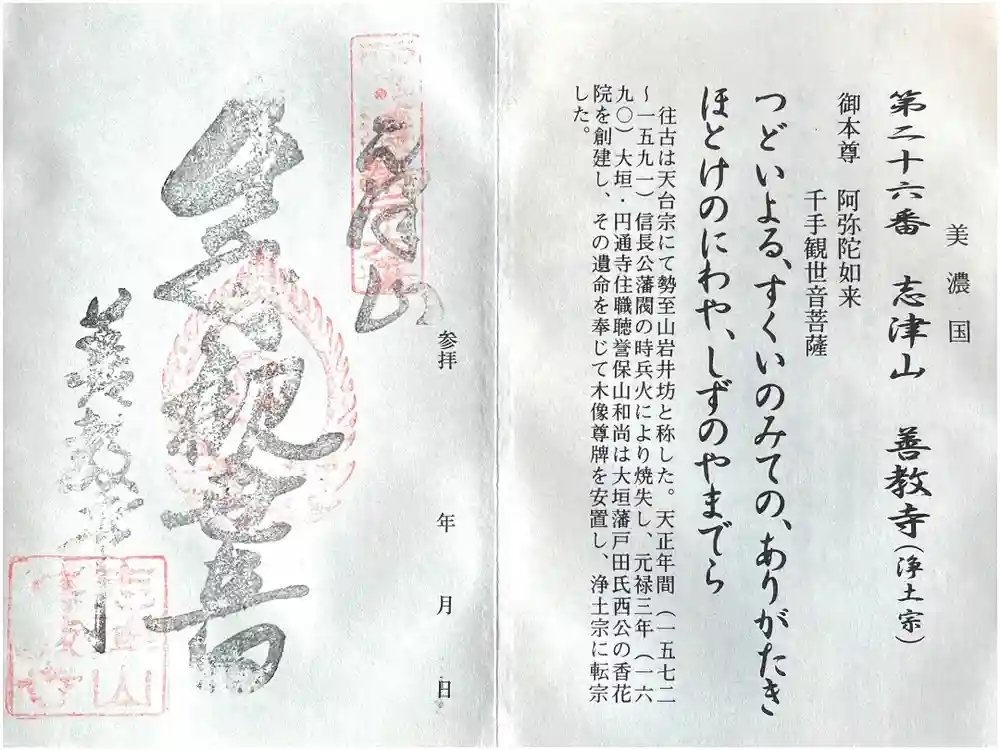 美濃国
第二十六番 志津山 善教寺(浄土宗)
御本尊 阿弥陀如来
千手観世音菩薩
つどいよる、すくいのみての、ありがたき
ほとけのにわや、しずのやまでら
往古は天台宗にて勢至山岩井坊と称した。天正年間(一五七二
〜一五九一)信長公藩閥の時兵火により焼失し、元禄三年(一六
九〇)大垣・円通寺住職聴誉保山和尚は大垣藩戸田氏西公の香花
院を創建し、その遺命を奉じて木像尊牌を安置し、浄土宗に転宗
した。
参拝 年 月 日
善教寺